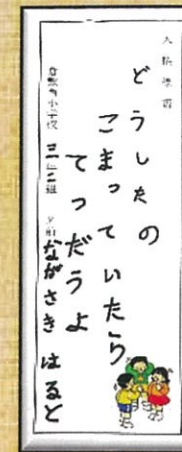 人権標語
どうしたの
こまっていたら
てつだうよ
小学校 二組 名前 ながさき はると